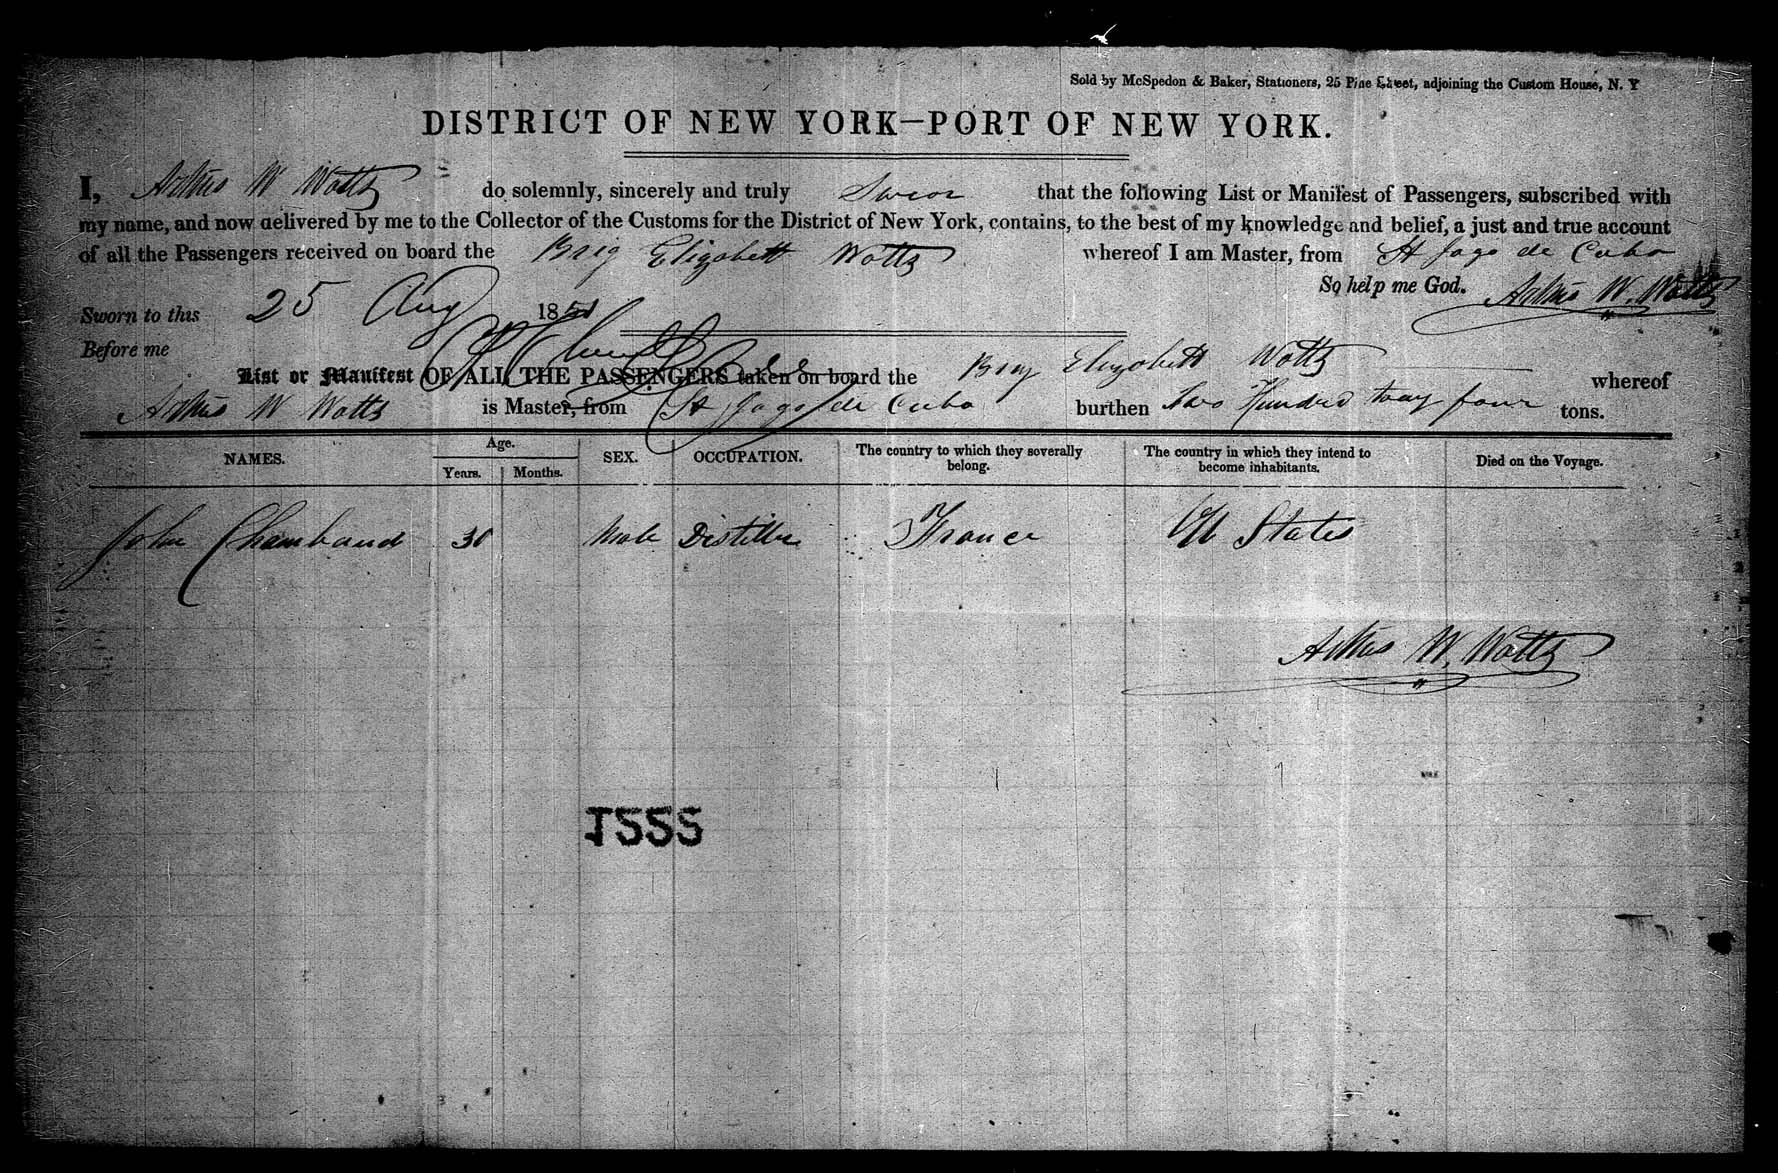 Sold by McSpedon & Baker, Stationers, 25 Pine Street, adjoining the Custom House, N. Y
DISTRICT OF NEW YORK—PORT OF NEW YORK.
I, W Watts do solemnly, sincerely and truly Swear that the following List or Manifest of Passengers, subscribed with
my name, and now delivered by me to the Collector of the Customs for the District of New York, contains, to the best of my knowledge and belief, a just and true account
of all the Passengers received on board the Brig Elizabeth Watts whereof I am Master, from St Jago de Cuba
So help me God. W. Watts
Sworn to this 25 Aug 1851
Before me
List or Manifest OF ALL THE PASSENGERS taken on board the Brig Elizabeth Watts whereof
W Watts is Master, from St Jago de Cuba burthen Two Hundred four tons.
NAMES. Age. Years. Months. SEX. OCCUPATION. The country to which they severally belong. The country in which they intend to become inhabitants. Died on the Voyage.
John Chambaud 30 Male Distiller France U States
W. Watts
1555